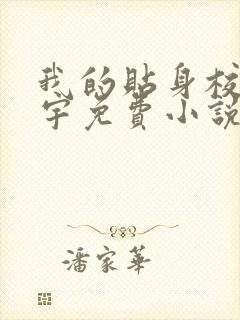 我的貼身校
字免費小說
潘家華